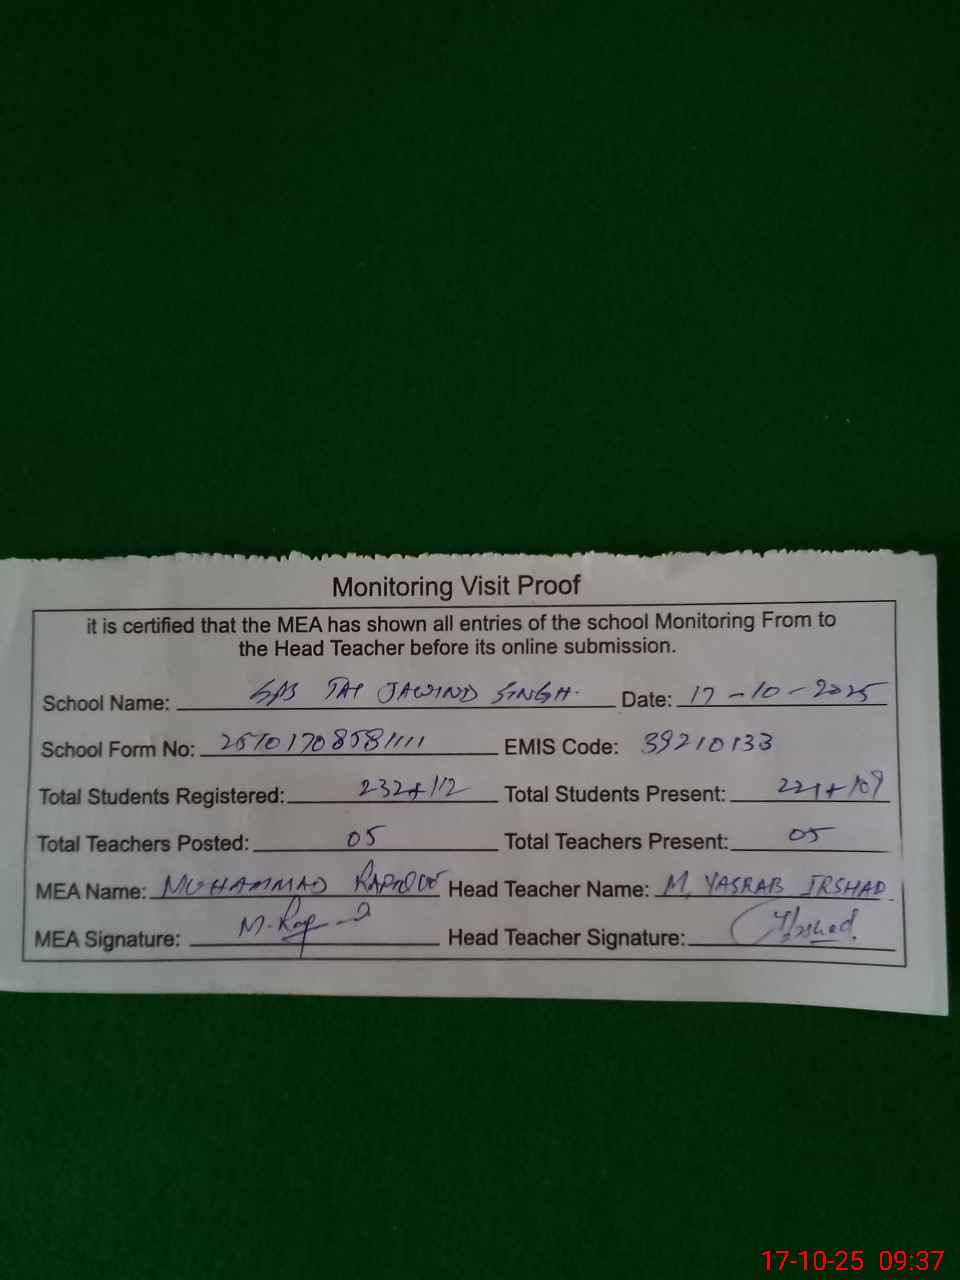 Monitoring Visit Proof
it is certified that the MEA has shown all entries of the school Monitoring From to
the Head Teacher before its online submission.
School Name: JAWIND SINGH. Date: 17-10-2025
School Form No: EMIS Code: 39210133
Total Students Registered: 232+112 Total Students Present: 221+109
Total Teachers Posted: 05 Total Teachers Present: 05
MEA Name: MUHAMMAD Head Teacher Name: M. YASRAB IRSHAD
MEA Signature: Head Teacher Signature:
17-10-25 09:37